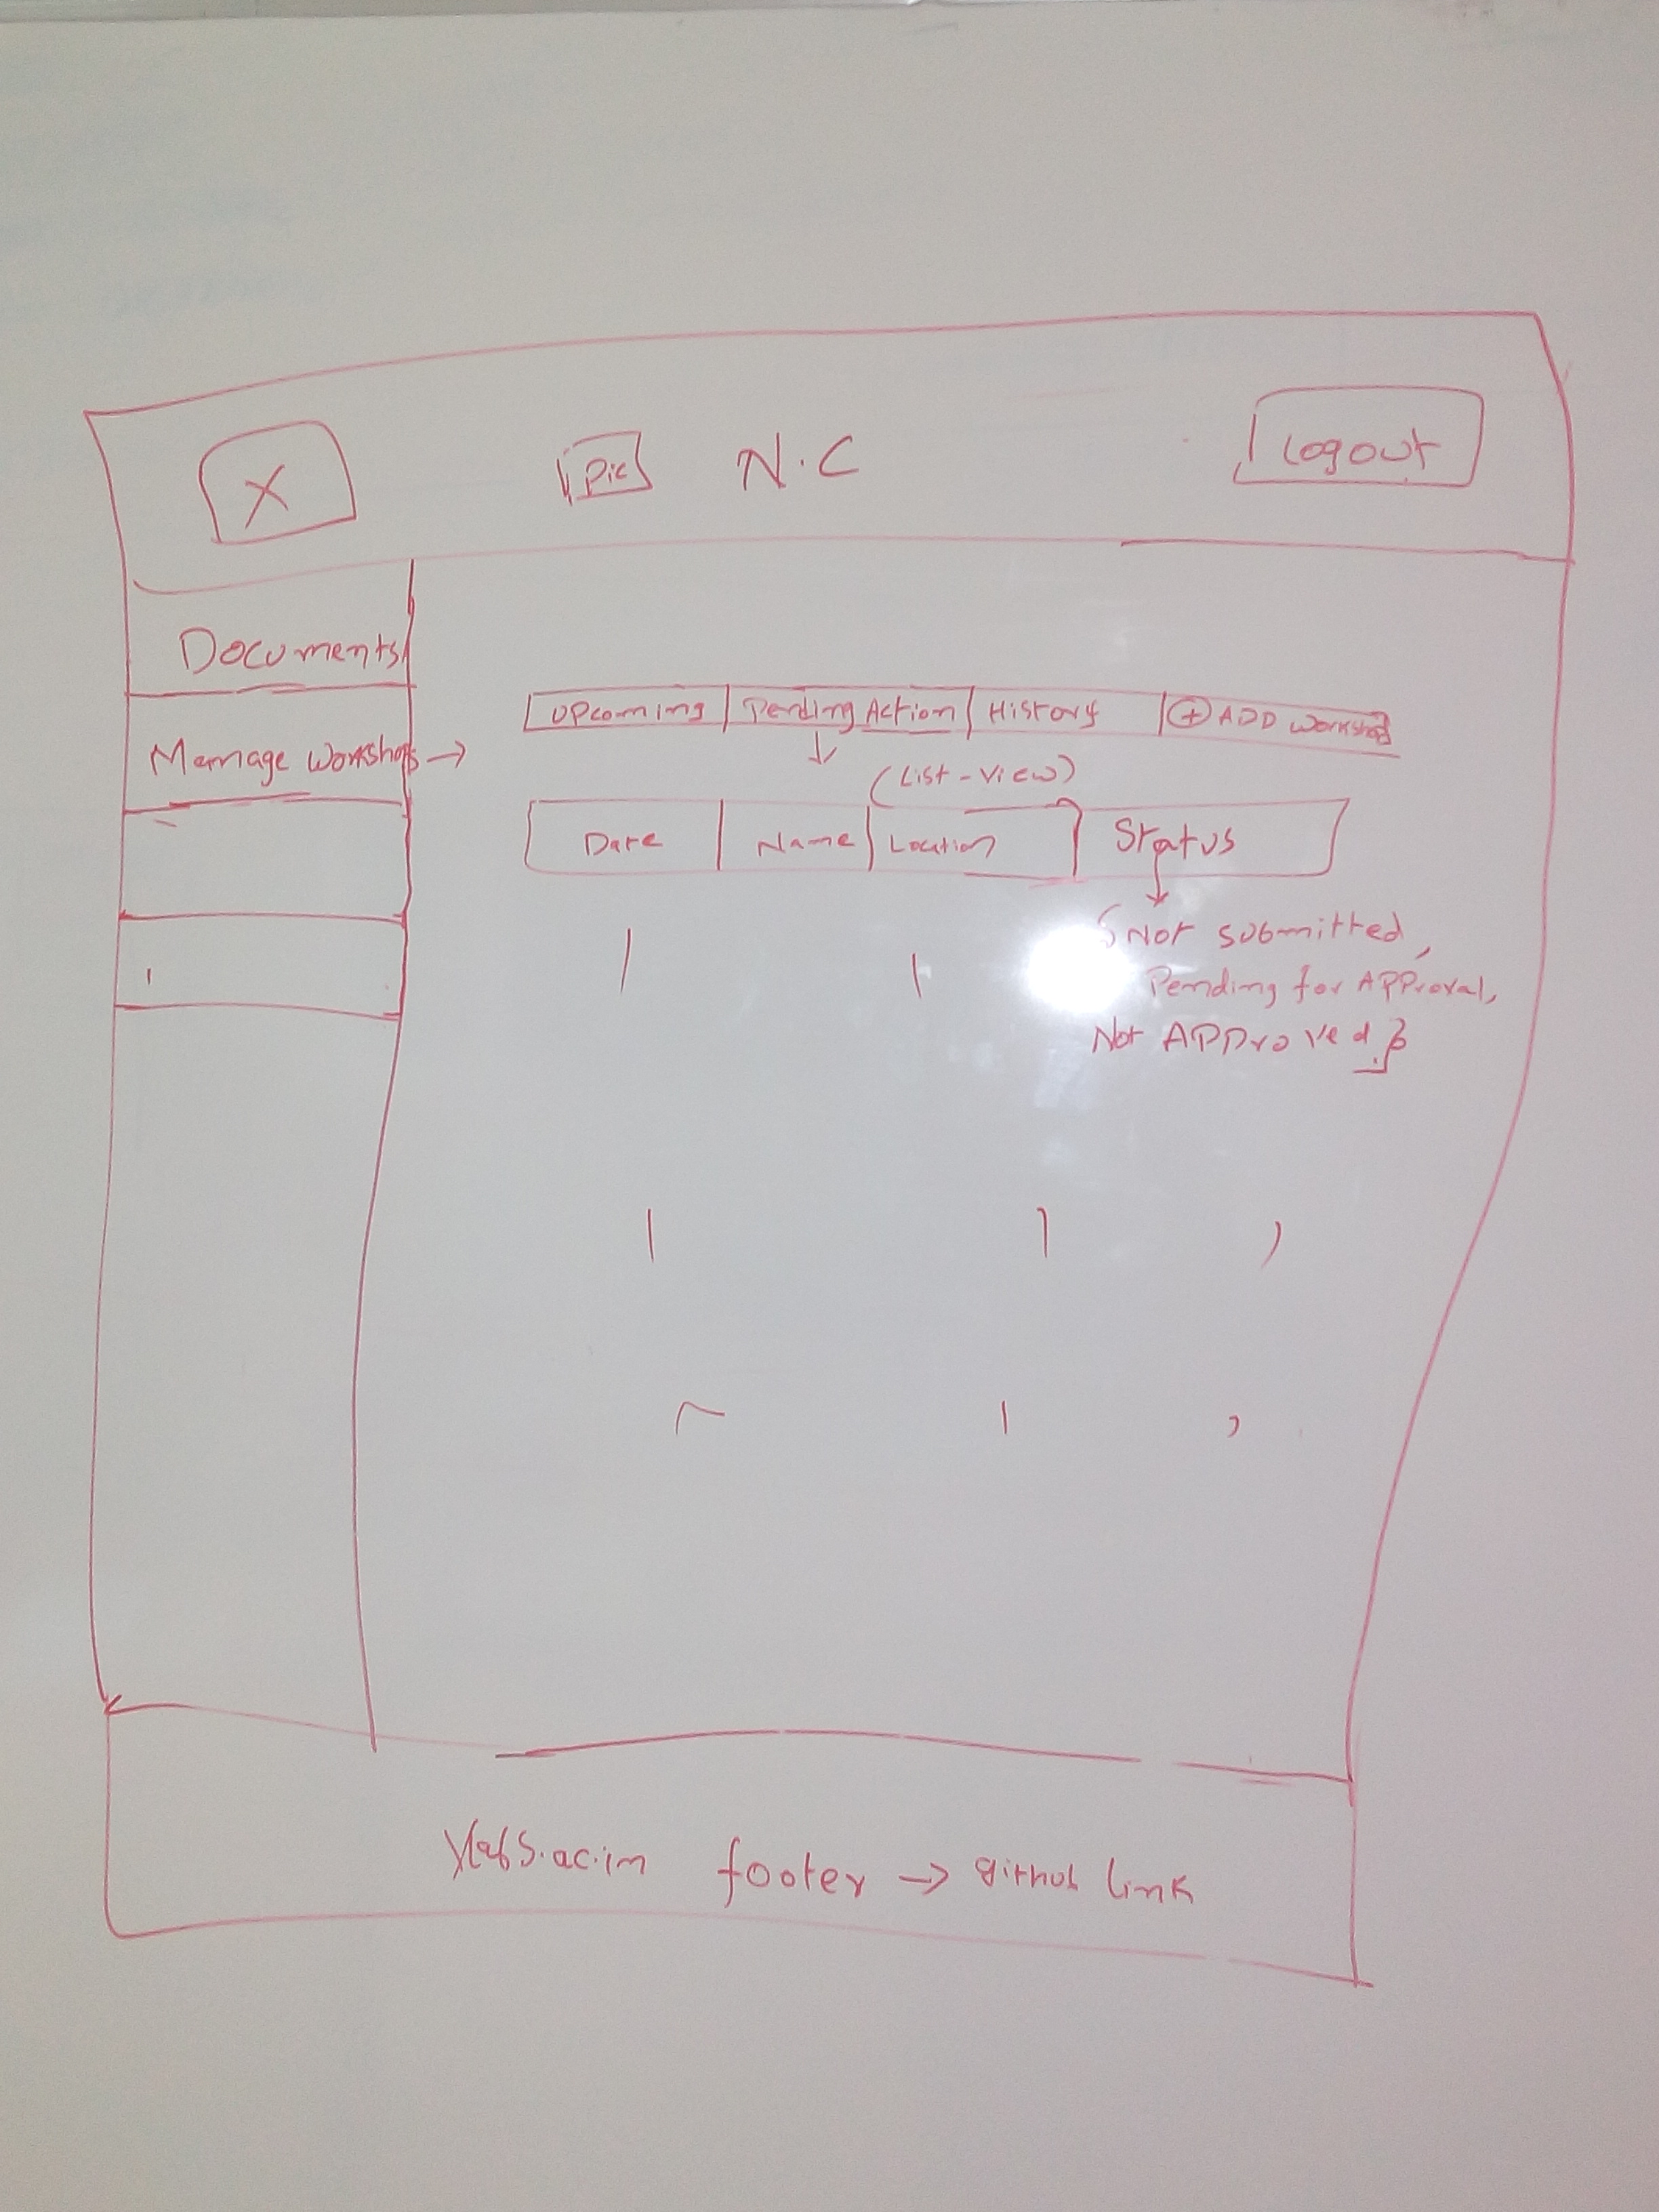 X
Pic N.C
Logout
Documents
Manage Workshops →
Upcoming Pending Action History + ADD Workshop
(List-View)
Date Name Location Status
{Not submitted,
Pending for APProval,
Not APProved.}
Vlabs.ac.in footer → github link